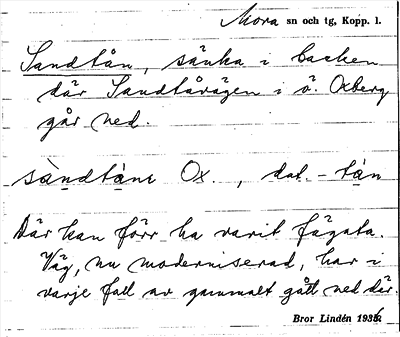 Mora sn och tg, Kopp. l.
Sandtån, sänka i backen
där Sandtåvägen i ö. Oxberg
går ned.
sàndtànı Ox., dat. - tàn
Där kan förr ha varit fägata.
Väg, nu moderniserad, har i
varje fall av gammalt gått ned där.
Bror Lindén 1936